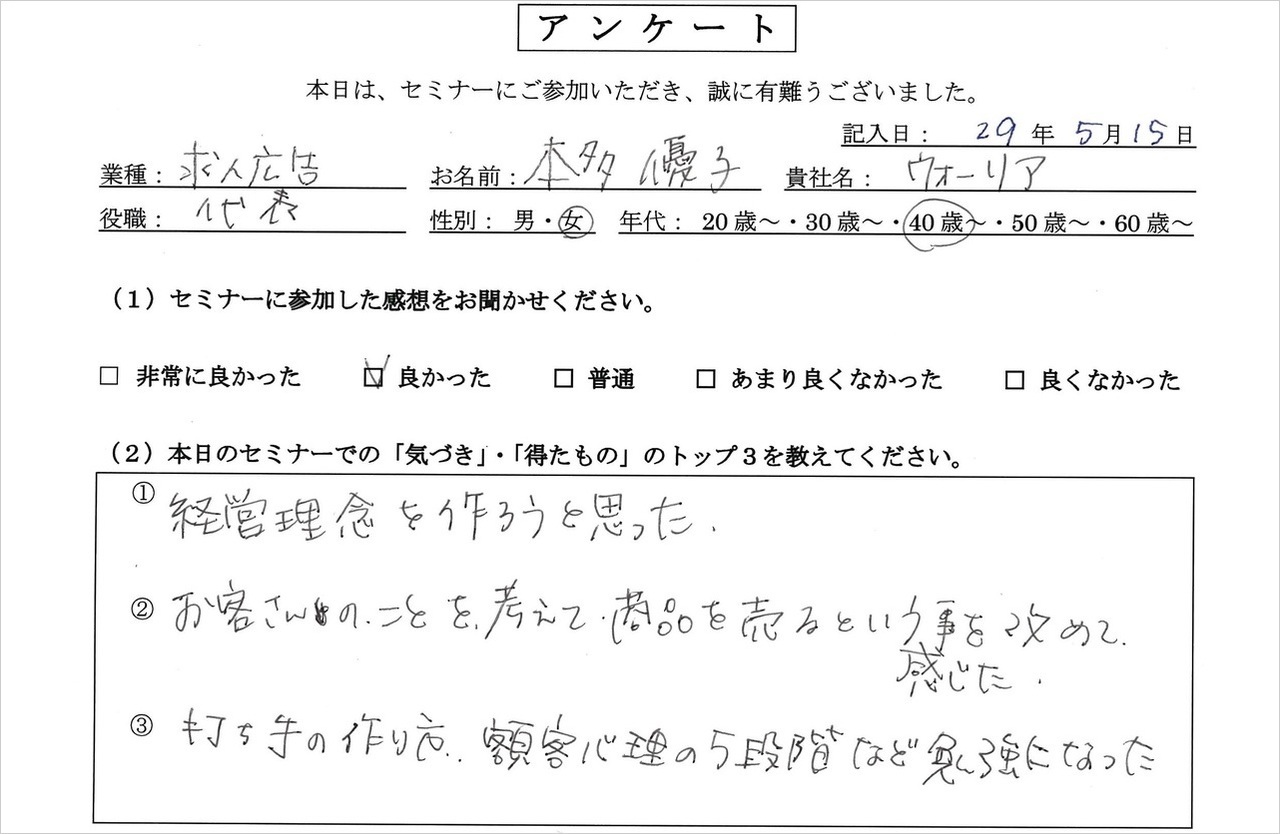 アンケート
本日は、セミナーにご参加いただき、誠に有難うございました。
記入日： 29 年 5 月 15 日
業種： 求人広告 お名前： 本多 優子 貴社名： ウォーリア
役職： 代表 性別： 男・女 年代： 20歳～・30歳～・40歳～・50歳～・60歳～
（１）セミナーに参加した感想をお聞かせください。
□ 非常に良かった ☑ 良かった □ 普通 □ あまり良くなかった □ 良くなかった
（２）本日のセミナーでの「気づき」・「得たもの」のトップ３を教えてください。
① 経営理念を作ろうと思った.
② お客さんのことを考えて.商品を売るという事を改めて.
感じた.
③ 打ち手の作り方.額客心理の5段階など勉強になった